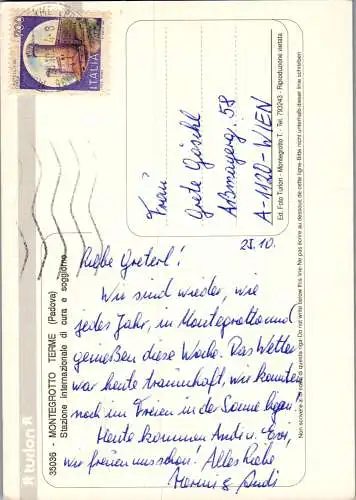 700
ITALIA
Frau
Grete Göschl
Aßmayerg. 58
A-1120-WIEN
Ed. Foto Turlon - Montegrotto T. - Tel. 793243 - Riproduzione vietata
23.10.
Liebe Greterl!
Wir sind wieder, wie
jedes Jahr, in Montegrotto und
genießen diese Woche. Das Wetter
war heute traumhaft, wir konnten
noch im Freien in der Sonne liegen.
Heute kommen Andi u. Evi,
wir freuen uns schon! Alles Liebe
Hermi & Andi
35036 - MONTEGROTTO TERME (Padova)
Stazione internazionale di cura e soggiorno
turlon
Non scrivere al di sotto di questa riga Do not write below this line Ne pas écrire au dessous de cette ligne-Bitte nicht unterhalb dieser linie schreiben